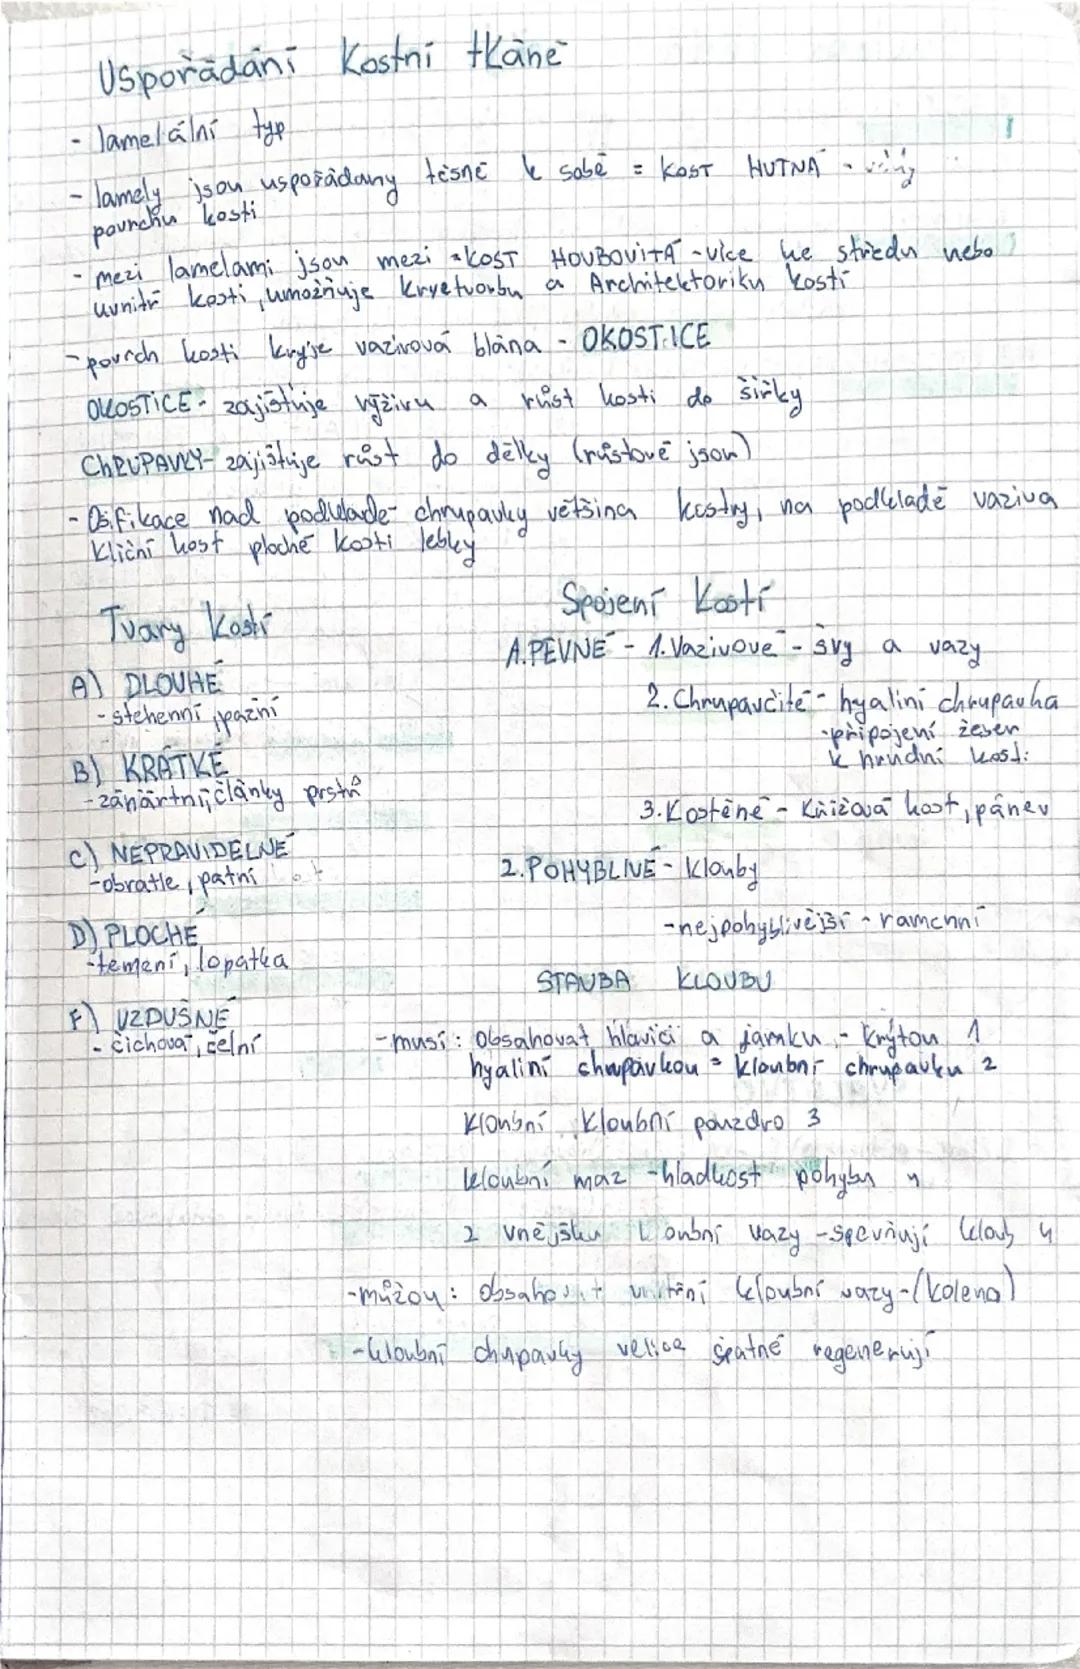 Uspořádání Kostní tkáně
- lamelální typ
- lamely jsou uspořádany těsně k sobě = KOST HUTNÁ -
povrchu kosti
- mezi lamelami jsou mezi = KOST HOUBOVITÁ - více ke středu nebo
uvnitř kosti, umožňuje krvetvorbu a Architektoriku kostí
- povrch kosti kryje vazivová blána - OKOSTICE
OKOSTICE - zajištuje výživu a růst kosti do šířky
ChRUPAVKY - zajištuje růst do délky (růstové jsou)
- Osifikace nad podklade chrupavky většina kostry, na podkladě vaziva
Klíční kost ploché kosti lebky
Tvary kostí
A) DLOUHÉ
- stehenní, pažní
B) KRÁTKÉ
- zánártní, články prstů
C) NEPRAVIDELNÉ
- obratle, patní
D) PLOCHÉ
- temení, lopatka
F) VZDUŠNÉ
- čichová, čelní
Spojení Kostí
A. PEVNÉ - 1. Vazivové - švy a vazy
2. Chrupavčité - hyaliní chrupavka
- připojení žeber
k hrudní kosti
3. Kostěné - Křížová kost, pánev
2. POHYBLIVÉ - Klouby
- nejpohyblivější - ramenní
STAVBA KLOUBU
- musí: Obsahovat hlavici a jamku - Krytou 1
hyaliní chrupavkou = kloubní chrupavku 2
Kloubní Kloubní pouzdro 3
kloubní maz - hladkost pohybu 4
z vnějšku kloubní vazy - zpevňují kloub 4
- můžou: Obsahovat vnitřní kloubní vazy - (kolena)
- kloubní chrupavky velice špatně regenerují